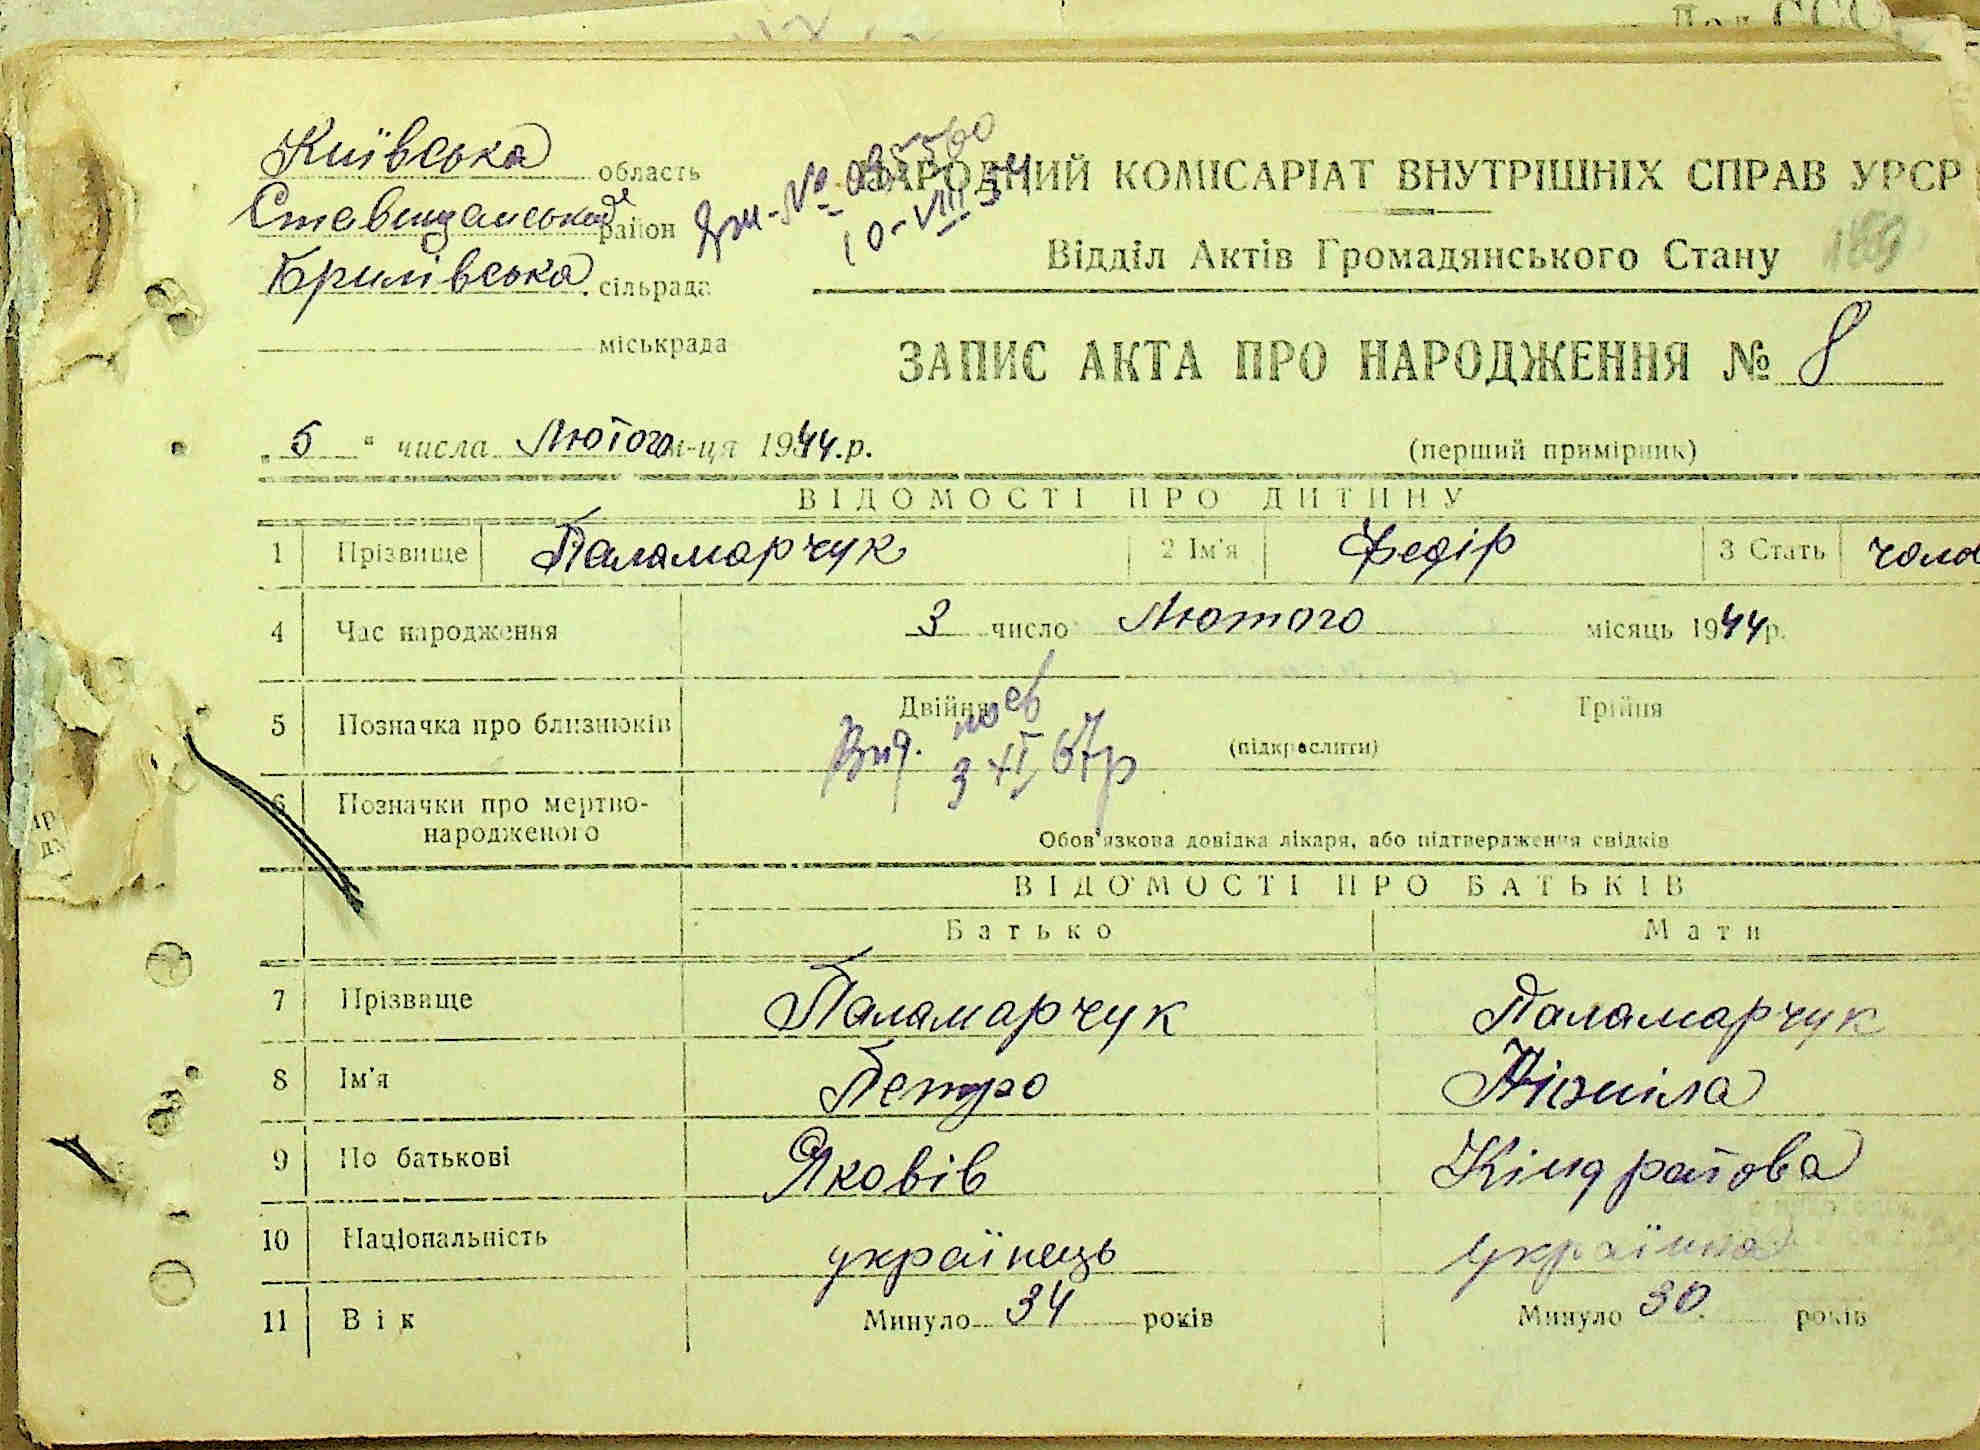 Київська область
Ставищанський район
Брилівська сільрада
міськрада
НАРОДНИЙ КОМІСАРІАТ ВНУТРІШНІХ СПРАВ УРСР
10-VIII 54
Відділ Актів Громадянського Стану
189
ЗАПИС АКТА ПРО НАРОДЖЕННЯ № 8
„5" числа Лютого м-ця 1944.р.
(перший примірник)
ВІДОМОСТІ ПРО ДИТИНУ
1 Прізвище Паламарчук 2 Ім'я Федір 3 Стать чолов
4 Час народження 3 число Лютого місяць 1944р.
5 Позначка про близнюків Двійня Трійня
(підкреслити)
Вид. 3 XI 67р
6 Позначки про мертво-
народженого
Обов'язкова довідка лікаря, або підтвердження свідків
ВІДОМОСТІ ПРО БАТЬКІВ
Батько Мати
7 Прізвище Паламарчук Паламарчук
8 Ім'я Петро
9 По батькові Яковів Кіндратова
10 Національність українець українка
11 Вік Минуло 34 років Минуло 30 років